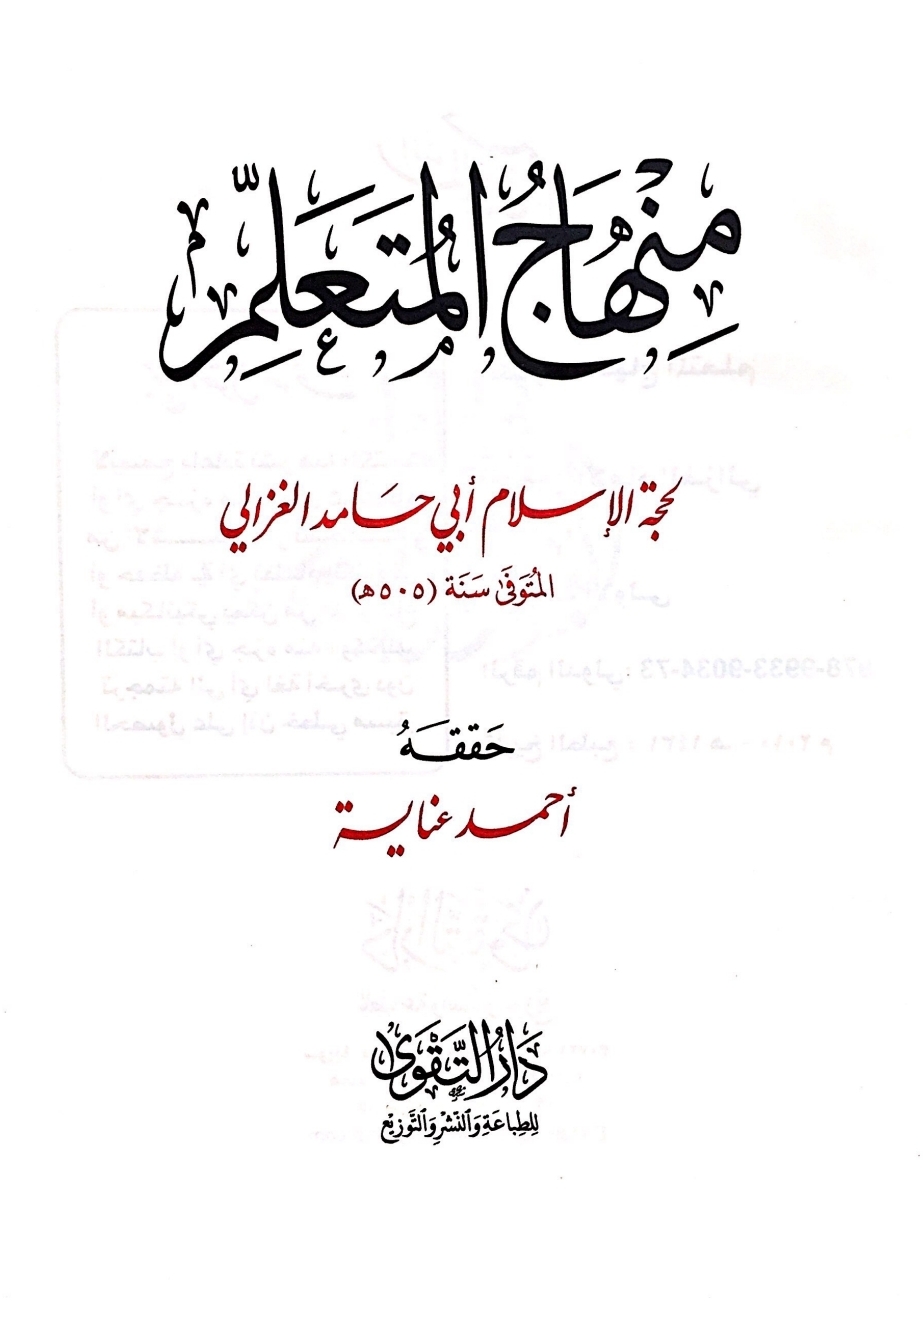 مِنْهَاجُ المُتَعَلِّمِ
لحجة الإسلام أبي حامد الغزالي
المُتَوَفَّى سَنَة (٥٠٥هـ)
حَقَقَهُ
أحمد عناية
دَارُ التَّقْوَى
لِلطِبَاعَةِ وَالنَشْرِ وَالتَّوزِيْع